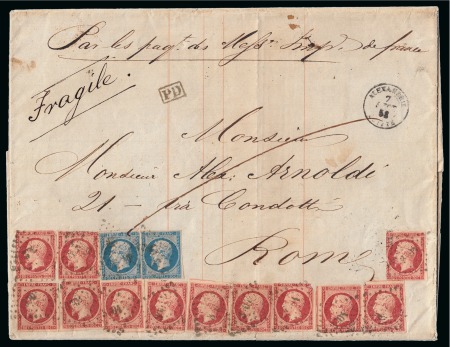 Par les paqt. des Messies Imp. de france
Fragile.
PD
ALEXANDRIE
7
58
Monsieur
Monsieur Alex. Arnoldi
21 - via Condotti
Rome